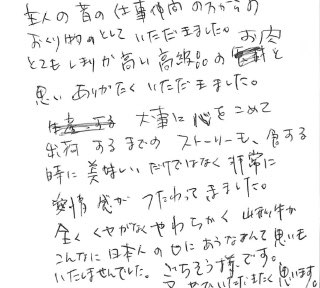 主人の昔の仕事仲間の方からの
おくり物のとしていただきました。お肉
とてもしまりが高い高級品の と
思いありがたくいただきました。
大事に心をこめて
出荷するまでのストーリーも、食する
時に美味しいだけではなく非常に
愛情感がつたわってきました。
全くくせがなくやわらかく 山形牛が
こんなに日本人の口にあうなんて思いも
いたしませんでした。ごちそう様です。
いただたく思います。